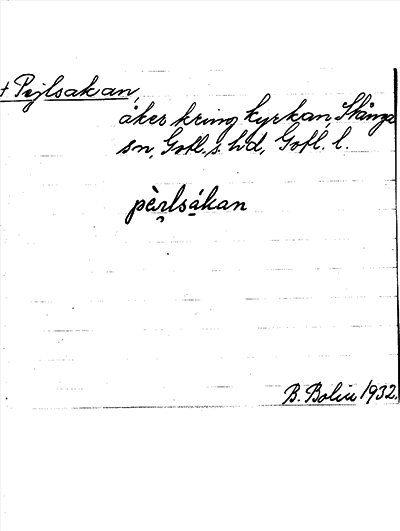 † Pejlsakan,
åker kring kyrkan, Stånga
sn, Gotl. s. hd, Gotl. l.
pèʀlsákan
B. Bolin 1932.